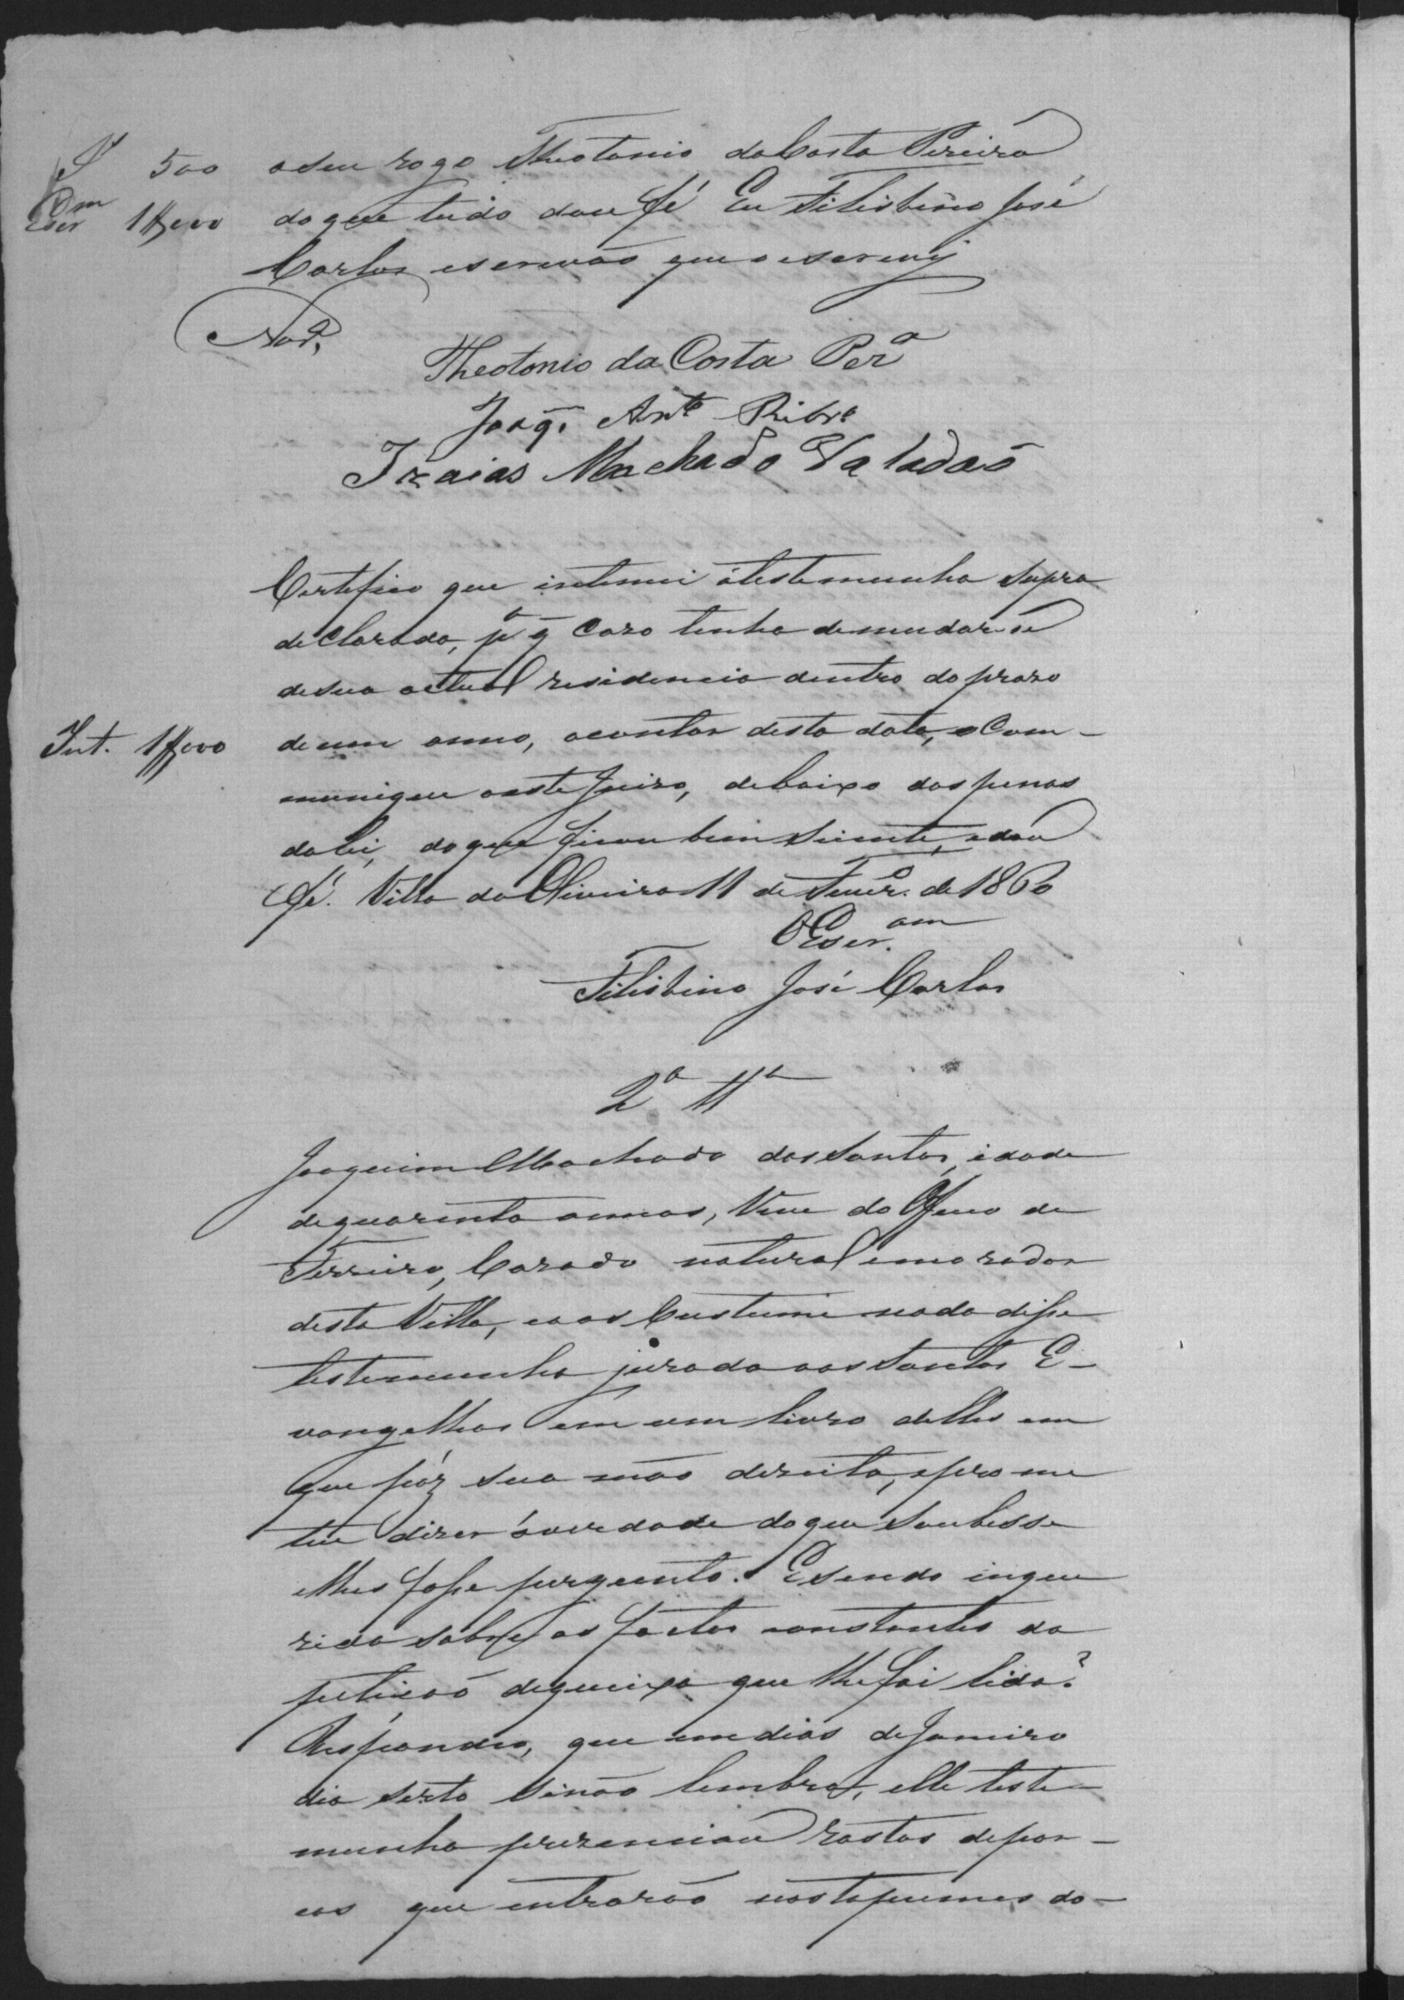 J 500 a seu rogo Theotonio da Costa Pereira
Escr.am 1$000 do que tudo dou fé Eu Felisbino José
Carlos escrivão que o escrevy
Theotonio da Costa Per.a
Joaq.m Ant.o Ribr.o
Izaias Machado Valadaõ
Certifico que intimei átestemunha supra
declarada, p.a q̃ cazo tenha demudarse
desua actual residencia dentro doprazo
Int. 1$000 deum anno, acontar desta data, o Com-
munique aeste Juizo, debaixo daspenas
dalei, doque ficou bem siente, edou
fé. Villa da Oliveira 11 de Fever.o de 1860
O Escr.am
Felisbino José Carlos
2.a Tt.a
Joaquim Machado dos Santos, idade
dequarenta annos, Vive do Officio de
Ferreiro, Cazado natural emorador
desta Villa, eaos Custume nada disse
testemunha jurada aos Santos E-
vangelhos em um livro delles em
que pôz sua mão direita, eprome
teu dizer áverdade doque soubesse
elhes fosse purgunto. Esendo inque
rido sobre os factos constantes da
petiçaõ dequeixa que lhe foi lida?
Respondeo, que em dias deJaneiro
dia serto senão lembra, elle teste-
munha prezenciou rastos depor-
cos que entrarão nostapumes do-